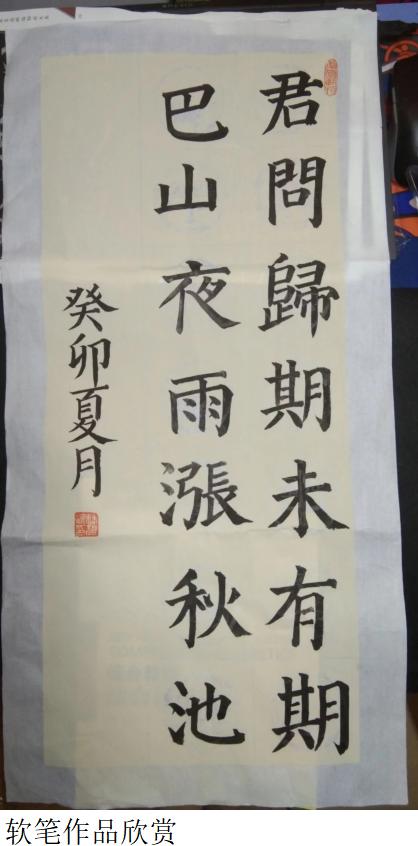 君問歸期未有期
巴山夜雨漲秋池
癸卯夏月
软笔作品欣赏